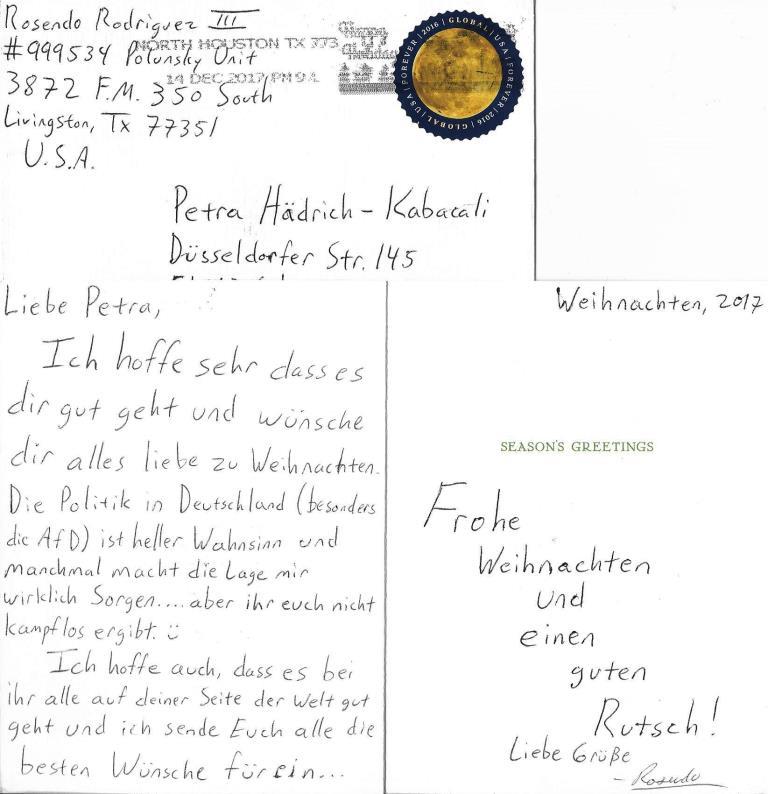 Rosendo Rodriguez III
#999534 Polunsky Unit
3872 F.M. 350 South
Livingston, Tx 77351
U.S.A.
NORTH HOUSTON TX 773
14 DEC 2017 PM 9 L
FOREVER | 2016 | GLOBAL | USA | FOREVER | 2016 | GLOBAL | USA
Petra Hädrich-Kabacali
Düsseldorfer Str. 145
Liebe Petra,
Ich hoffe sehr dass es
dir gut geht und wünsche
dir alles liebe zu Weihnachten.
Die Politik in Deutschland (besonders
die AfD) ist heller Wahnsinn und
manchmal macht die Lage mir
wirklich Sorgen.... aber ihr euch nicht
kampflos ergibt. ü
Ich hoffe auch, dass es bei
ihr alle auf deiner Seite der Welt gut
geht und ich sende Euch alle die
besten Wünsche für ein...
Weihnachten, 2017
SEASON'S GREETINGS
Frohe
Weihnachten
und
einen
guten
Rutsch!
Liebe Grüße
- Rosendo